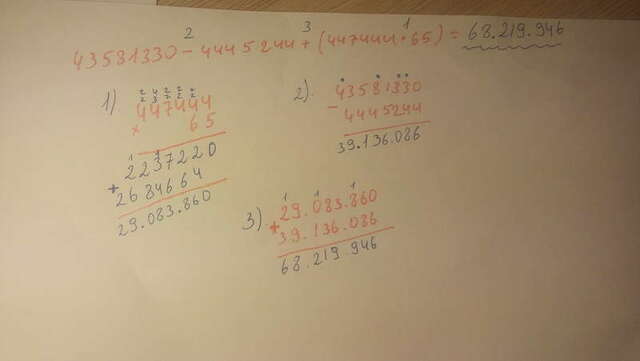 2 3 1
43581330 - 4445244 + (447444 · 65) = 68.219.946
1)
2 4 2 2 2
2 3 2 2 2
447444
× 65
1 1
2237220
+ 2684664
29.083.860
2).
43581330
- 4445244
39.136.086
3)
1 1 1
29.083.860
+ 39.136.086
68.219.946